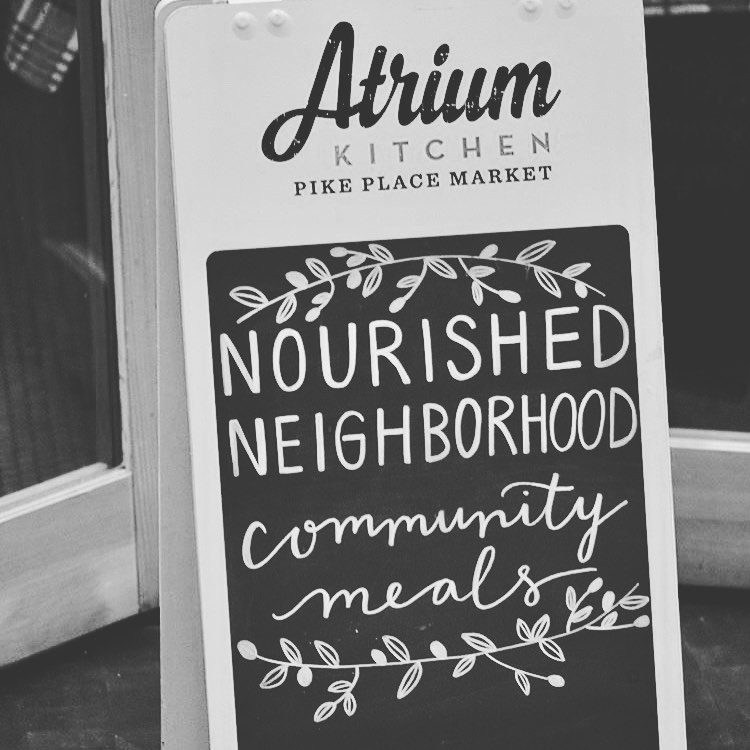 Atrium
KITCHEN
PIKE PLACE MARKET
NOURISHED
NEIGHBORHOOD
community
meals